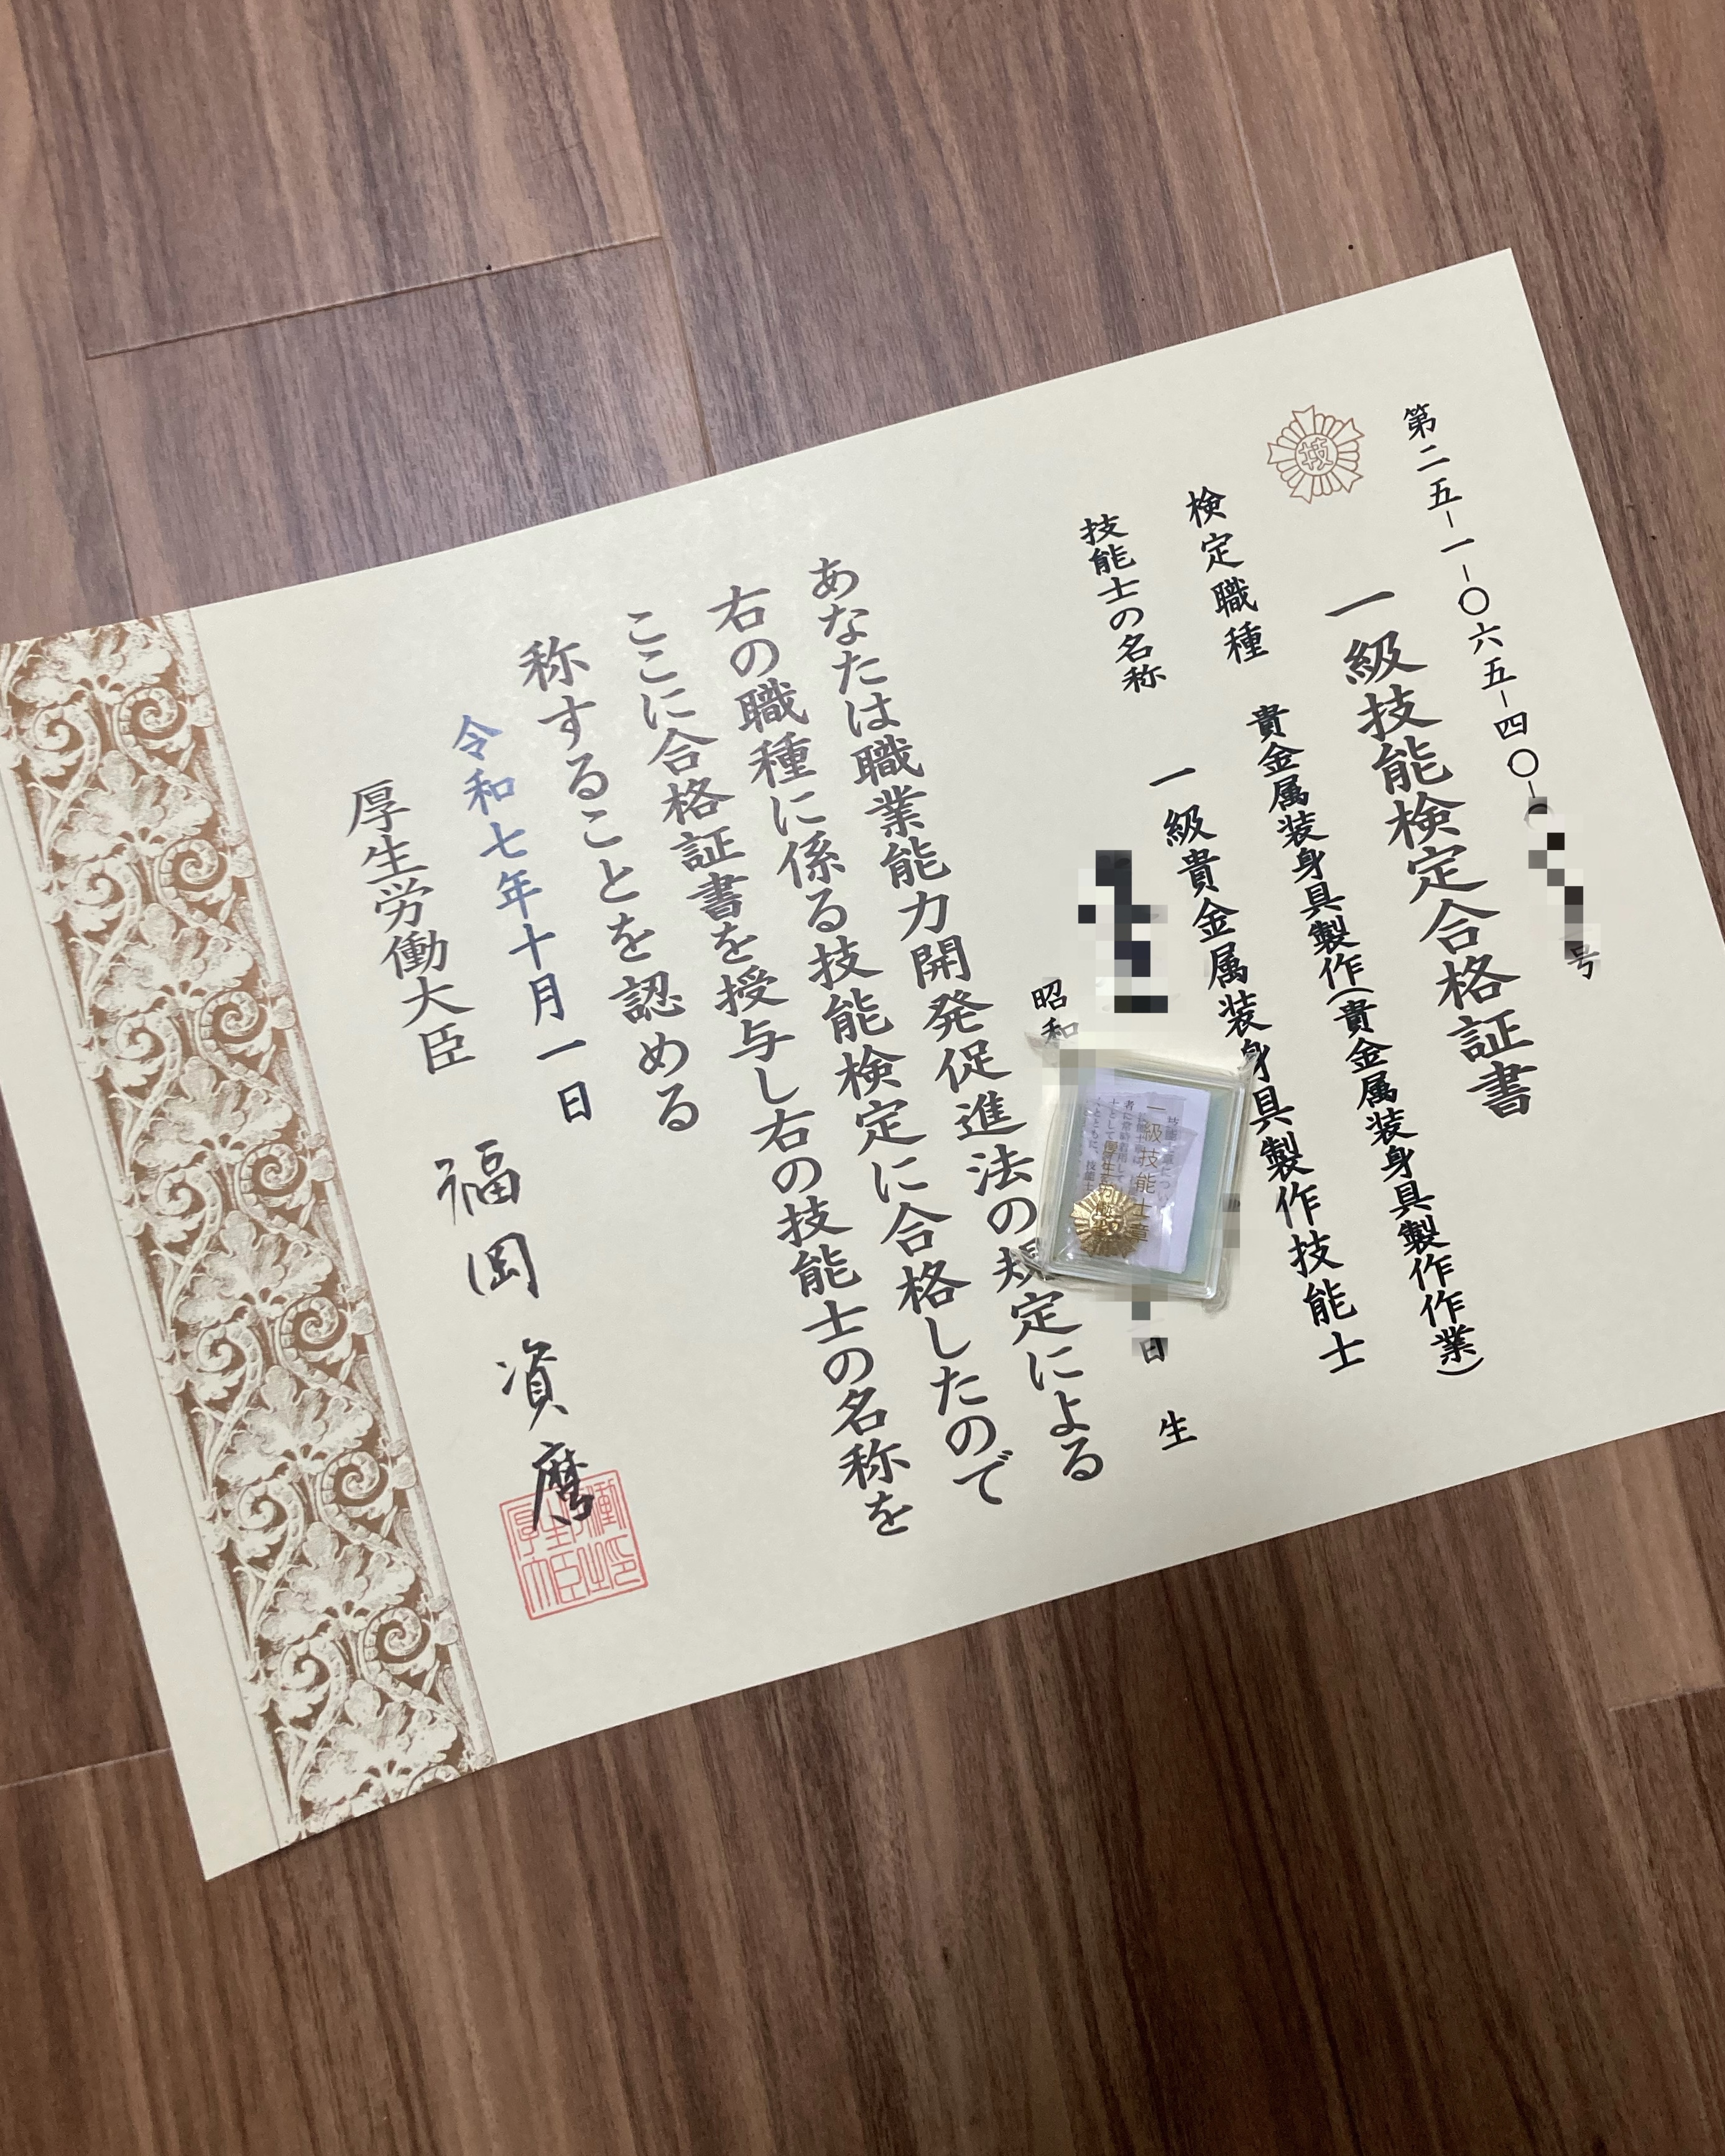 第二五-一-〇六五-四〇-
号
一級技能検定合格証書
技
検定職種 貴金属装身具製作(貴金属装身具製作作業)
技能士の名称 一級貴金属装身具製作技能士
昭和
日生
あなたは職業能力開発促進法の規定による
右の職種に係る技能検定に合格したので
ここに合格証書を授与し右の技能士の名称を
称することを認める
令和七年十月一日
厚生労働大臣 福岡資麿
厚生労働大臣之印
一級技能士章